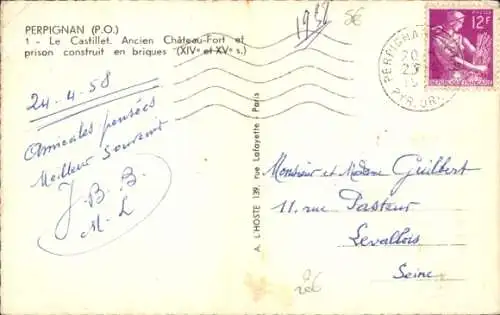 PERPIGNAN (P.O.)
1 - Le Castillet. Ancien Château-Fort et
prison construit en briques (XIVe et XVe s.)
1958
5€
PERPIGNAN
20
23
15
PYR. OR.
12F
24-4-58
Amicales pensées
Meilleur Souvenir
J. B. B.
M. L
A. L'HOSTE 139, rue Lafayette - Paris
Monsieur et Madame Guilbert
11, rue Pasteur
Levallois
Seine
2€